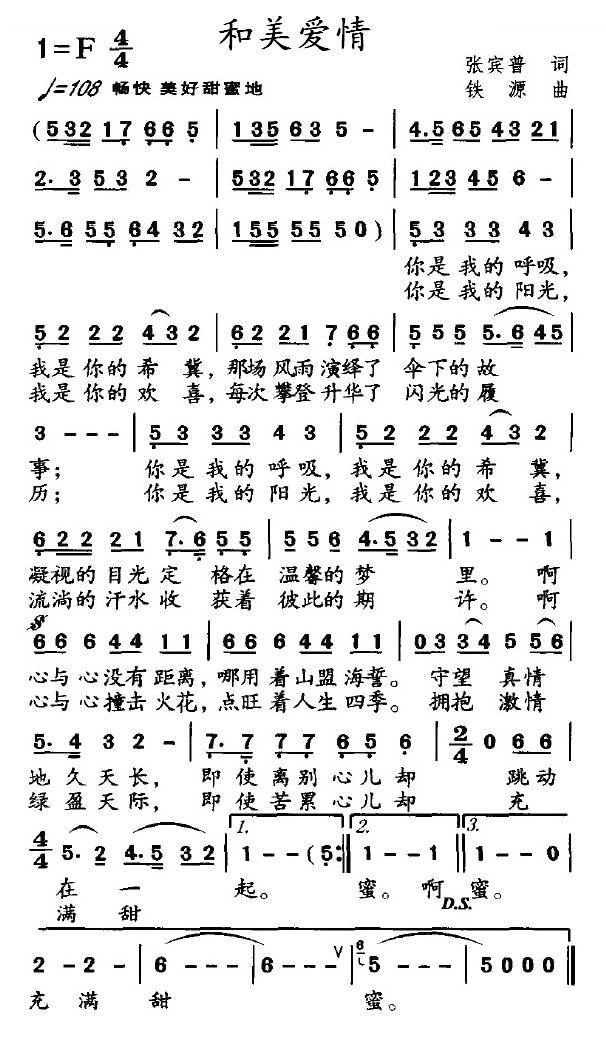 和美爱情
1=F 4/4
♩=108 畅快 美好甜蜜地
张宾普 词
铁源 曲
(532 17 66 5 | 135 63 5 - | 4.5 65 43 21 |
2. 3 5 3 2 - | 532 17 66 5 | 123 45 6 - |
5.6 55 64 32 | 155 55 50) | 5 3 33 4 3 |
你是我的呼吸,
你是我的阳光,
5 2 22 43 2 | 62 21 7 66 | 5 55 5.6 45 |
我是你的希冀,那场风雨演绎了 伞下的故
我是你的欢喜,每次攀登升华了 闪光的履
3 - - - | 5 3 33 4 3 | 5 2 22 43 2 |
事; 你是我的呼吸,我是你的希冀,
历; 你是我的阳光,我是你的欢喜,
622 21 7.6 55 | 5 56 4.5 32 | 1 - - 1 |
凝视的目光定格在 温馨的梦里。啊
流淌的汗水收获着 彼此的期许。啊
66 644 11 | 66 644 11 | 0334 5 56 |
心与心没有距离,哪用着山盟海誓。守望 真情
心与心撞击火花,点旺着人生四季。拥抱 激情
5. 4 3 2 - | 7. 7 77 65 6 | 2/4 0 66 |
地久天长, 即使离别心儿却 跳动
绿盈天际, 即使苦累心儿却 充
4/4 5. 2 4.5 32 | 1. 1 - - (5:‖ 2. 1 - - 1 ‖ 3. 1 - - 0 |
在一起。 蜜。啊 蜜。
满甜 D.S.
2 - 2 - | 6 - - - | 6 - - - V | 6 5 - - - | 5 0 0 0 ‖
充满甜 蜜。